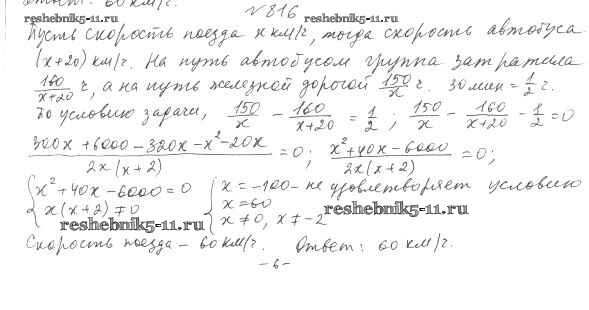 Ответ: 60 км/г.
№816
reshebnik5-11.ru
Пусть скорость поезда x км/г, тогда скорость автобуса
(x+20) км/г. На путь автобусом группа затратила
160/(x+20) г, а на путь железной дорогой 150/x г. 30 мин = 1/2 г.
По условию задачи, 150/x - 160/(x+20) = 1/2; 150/x - 160/(x+20) - 1/2 = 0
(300x + 6000 - 320x - x² - 20x)/(2x(x+2)) = 0; (x² + 40x - 6000)/(2x(x+2)) = 0;
{x² + 40x - 6000 = 0 {x = -100 - не удовлетворяет условию
x(x+2) ≠ 0 x = 60
x ≠ 0, x ≠ -2
reshebnik5-11.ru
reshebnik5-11.ru
Скорость поезда - 60 км/г. Ответ: 60 км/г.
-6-